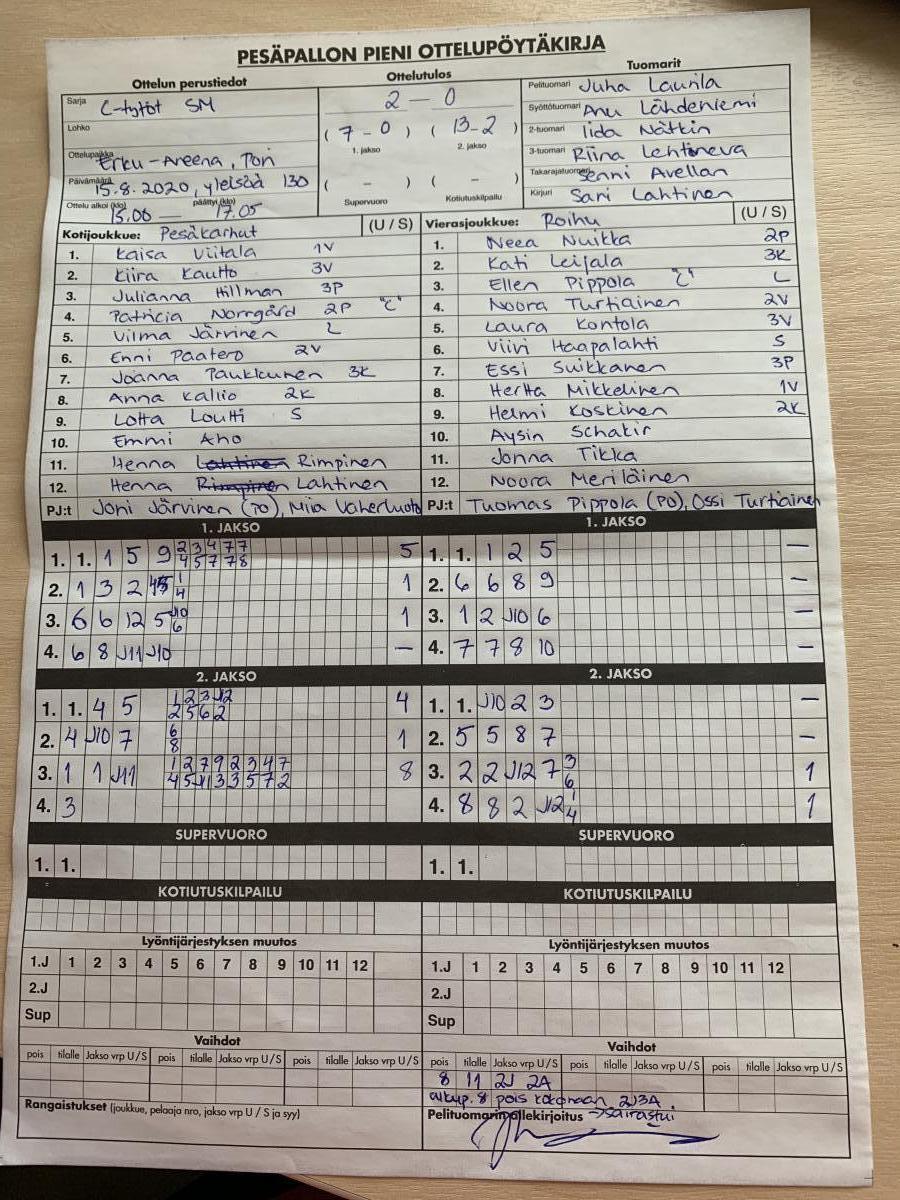 PESÄPALLON PIENI OTTELUPÖYTÄKIRJA
Ottelun perustiedot
Ottelutulos
Tuomarit
Sarja C-tytöt SM
2 - 0
Pelituomari Juha Laurila
Lohko
( 7 - 0 ) ( 13 - 2 )
Syöttötuomari Anu Lähdeniemi
1. jakso 2. jakso
2-tuomari Iida Nätkin
Ottelupaikka Erku-Areena, Pori
3-tuomari Riina Lehtineva
Päivämäärä 15.8.2020, yleisöä 130
( - ) ( - )
Takarajatuomari Senni Avellan
Ottelu alkoi (klo) 15.00 — päättyi (klo) 17.05
Supervuoro Kotiutuskilpailu
Kirjuri Sari Lahtinen
Kotijoukkue: Pesäkarhut (U / S)
1. Kaisa Viitala 1V
2. Kiira Kautto 3V
3. Julianna Hillman 3P
4. Patricia Norrgård 2P "C"
5. Vilma Järvinen L
6. Enni Paatero 2V
7. Joanna Paukkunen 3K
8. Anna Kallio 2K
9. Lotta Loutti S
10. Emmi Aho
11. Henna Lahtinen Rimpinen
12. Henna Rimpinen Lahtinen
PJ:t Joni Järvinen (PO), Mia Vaherluoto
Vierasjoukkue: Roihu (U / S)
1. Neea Nuikka 2P
2. Kati Leijala 3K
3. Ellen Pippola "C" L
4. Noora Turtiainen 2V
5. Laura Kontola 3V
6. Viivi Haapalahti S
7. Essi Suikkanen 3P
8. Hertta Mikkelinen 1V
9. Helmi Koskinen 2K
10. Aysin Schakir
11. Jonna Tikka
12. Noora Meriläinen
PJ:t Tuomas Pippola (PO), Ossi Turtiainen
1. JAKSO
1. 1. 1 5 9 2 3 4 7 7 5
4 5 7 7 8
2. 1 3 2 1 1
4
3. 6 6 12 5 J10 1
6
4. 6 8 J11 J10 —
1. JAKSO
1. 1. 1 2 5 —
2. 6 6 8 9 —
3. 1 2 J10 6 —
4. 7 7 8 10 —
2. JAKSO
1. 1. 4 5 1 2 3 J12 4
2 5 6 2
2. 4 J10 7 6 1
8
3. 1 1 J11 1 2 7 9 2 3 4 7 8
4 5 J11 3 3 5 7 2
4. 3
2. JAKSO
1. 1. J10 2 3 —
2. 5 5 8 7 —
3. 2 2 J12 7 3 1
6
4. 8 8 2 J12 1 1
4
SUPERVUORO
1. 1.
SUPERVUORO
1. 1.
KOTIUTUSKILPAILU
KOTIUTUSKILPAILU
Lyöntijärjestyksen muutos
1.J 1 2 3 4 5 6 7 8 9 10 11 12
2.J
Sup
Lyöntijärjestyksen muutos
1.J 1 2 3 4 5 6 7 8 9 10 11 12
2.J
Sup
Vaihdot
pois tilalle Jakso vrp U / S pois tilalle Jakso vrp U / S pois tilalle Jakso vrp U / S
Rangaistukset (joukkue, pelaaja nro, jakso vrp U / S ja syy)
Vaihdot
pois tilalle Jakso vrp U / S pois tilalle Jakso vrp U / S pois tilalle Jakso vrp U / S
8 11 2J 2A
alkup. 8 pois kokonaan 2J3A
Pelituomarin allekirjoitus → sairastui